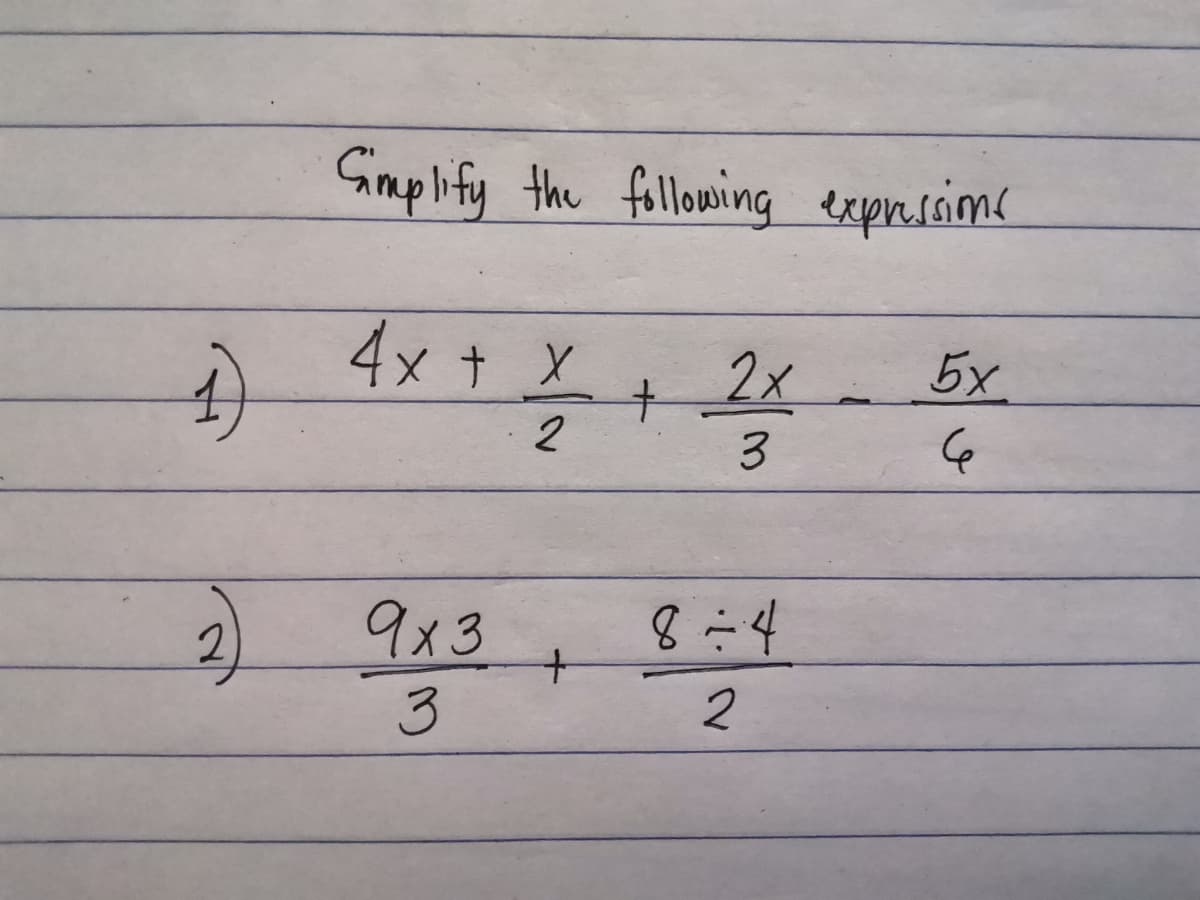 Simplify the following expressions
1) 4x + x/2 + 2x/3 - 5x/6
2) 9x3/3 + 8÷4/2